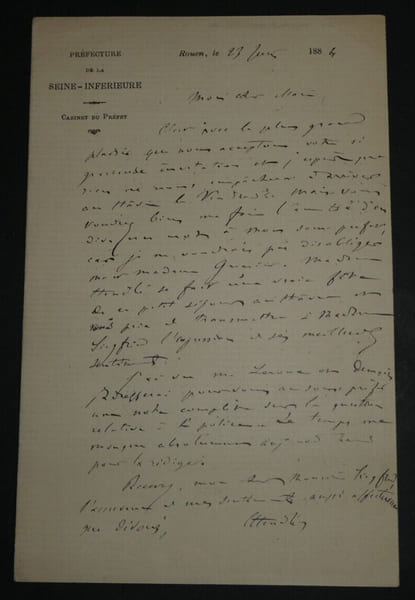 PRÉFECTURE
DE LA
SEINE-INFÉRIEURE
CABINET DU PRÉFET
Rouen, le 23 188 4
Mon cher Maire,
C'est avec le plus grand
plaisir que nous acceptons votre si
gracieuse invitation et j'espère que
rien ne nous empêchera d'arriver
au Hâvre le Vendredi. Mais vous
voudrez bien me faire l'amitié d'en
dire un mot à mon sous-préfet,
car je ne voudrais pas désobliger
madame Madame
Hendlé se fait une vraie fête
de ce petit séjour au Hâvre et
vous prie de transmettre à Madame
Siegfried l'expression de ses meilleurs
sentiments.
J'ai vu me
au sous-préfet
une note complète sur la question
relative à la police. Le temps me
manque absolument aujourd'hui
pour la rédiger.
Recevez, mon cher Monsieur Siegfried,
l'assurance de mes sentiments aussi affectueux
que dévoués,
Hendlé